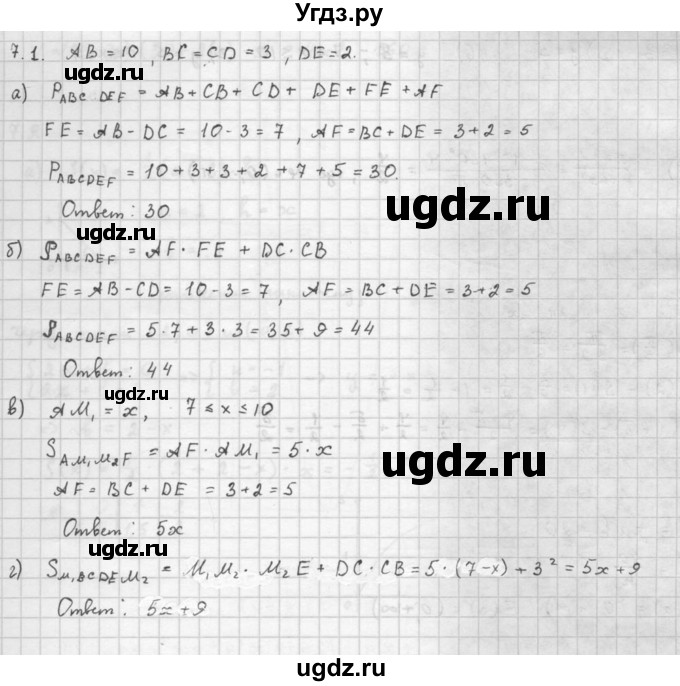 Угдз.ру
7.1. AB = 10 , BC = CD = 3 , DE = 2.
ugdz.ru
а) P_ABCDEF = AB + CB + CD + DE + FE + AF
FE = AB - DC = 10 - 3 = 7 , AF = BC + DE = 3 + 2 = 5
P_ABCDEF = 10 + 3 + 3 + 2 + 7 + 5 = 30.
Ответ: 30
ugdz.ru
ugdz.ru
б) S_ABCDEF = AF · FE + DC · CB
FE = AB - CD = 10 - 3 = 7 , AF = BC + DE = 3 + 2 = 5
S_ABCDEF = 5 · 7 + 3 · 3 = 35 + 9 = 44
Ответ: 44
ugdz.ru
в) AM₁ = x , 7 ≤ x ≤ 10
S_AM₁M₂F = AF · AM₁ = 5 · x
ugdz.ru
AF = BC + DE = 3 + 2 = 5
Ответ: 5x
ugdz.ru
г) S_M₁BCDEM₂ = M₁M₂ · M₂E + DC · CB = 5 · (7-x) + 3² = 5x + 9
Ответ: 5x + 9
ugdz.ru
ugdz.ru